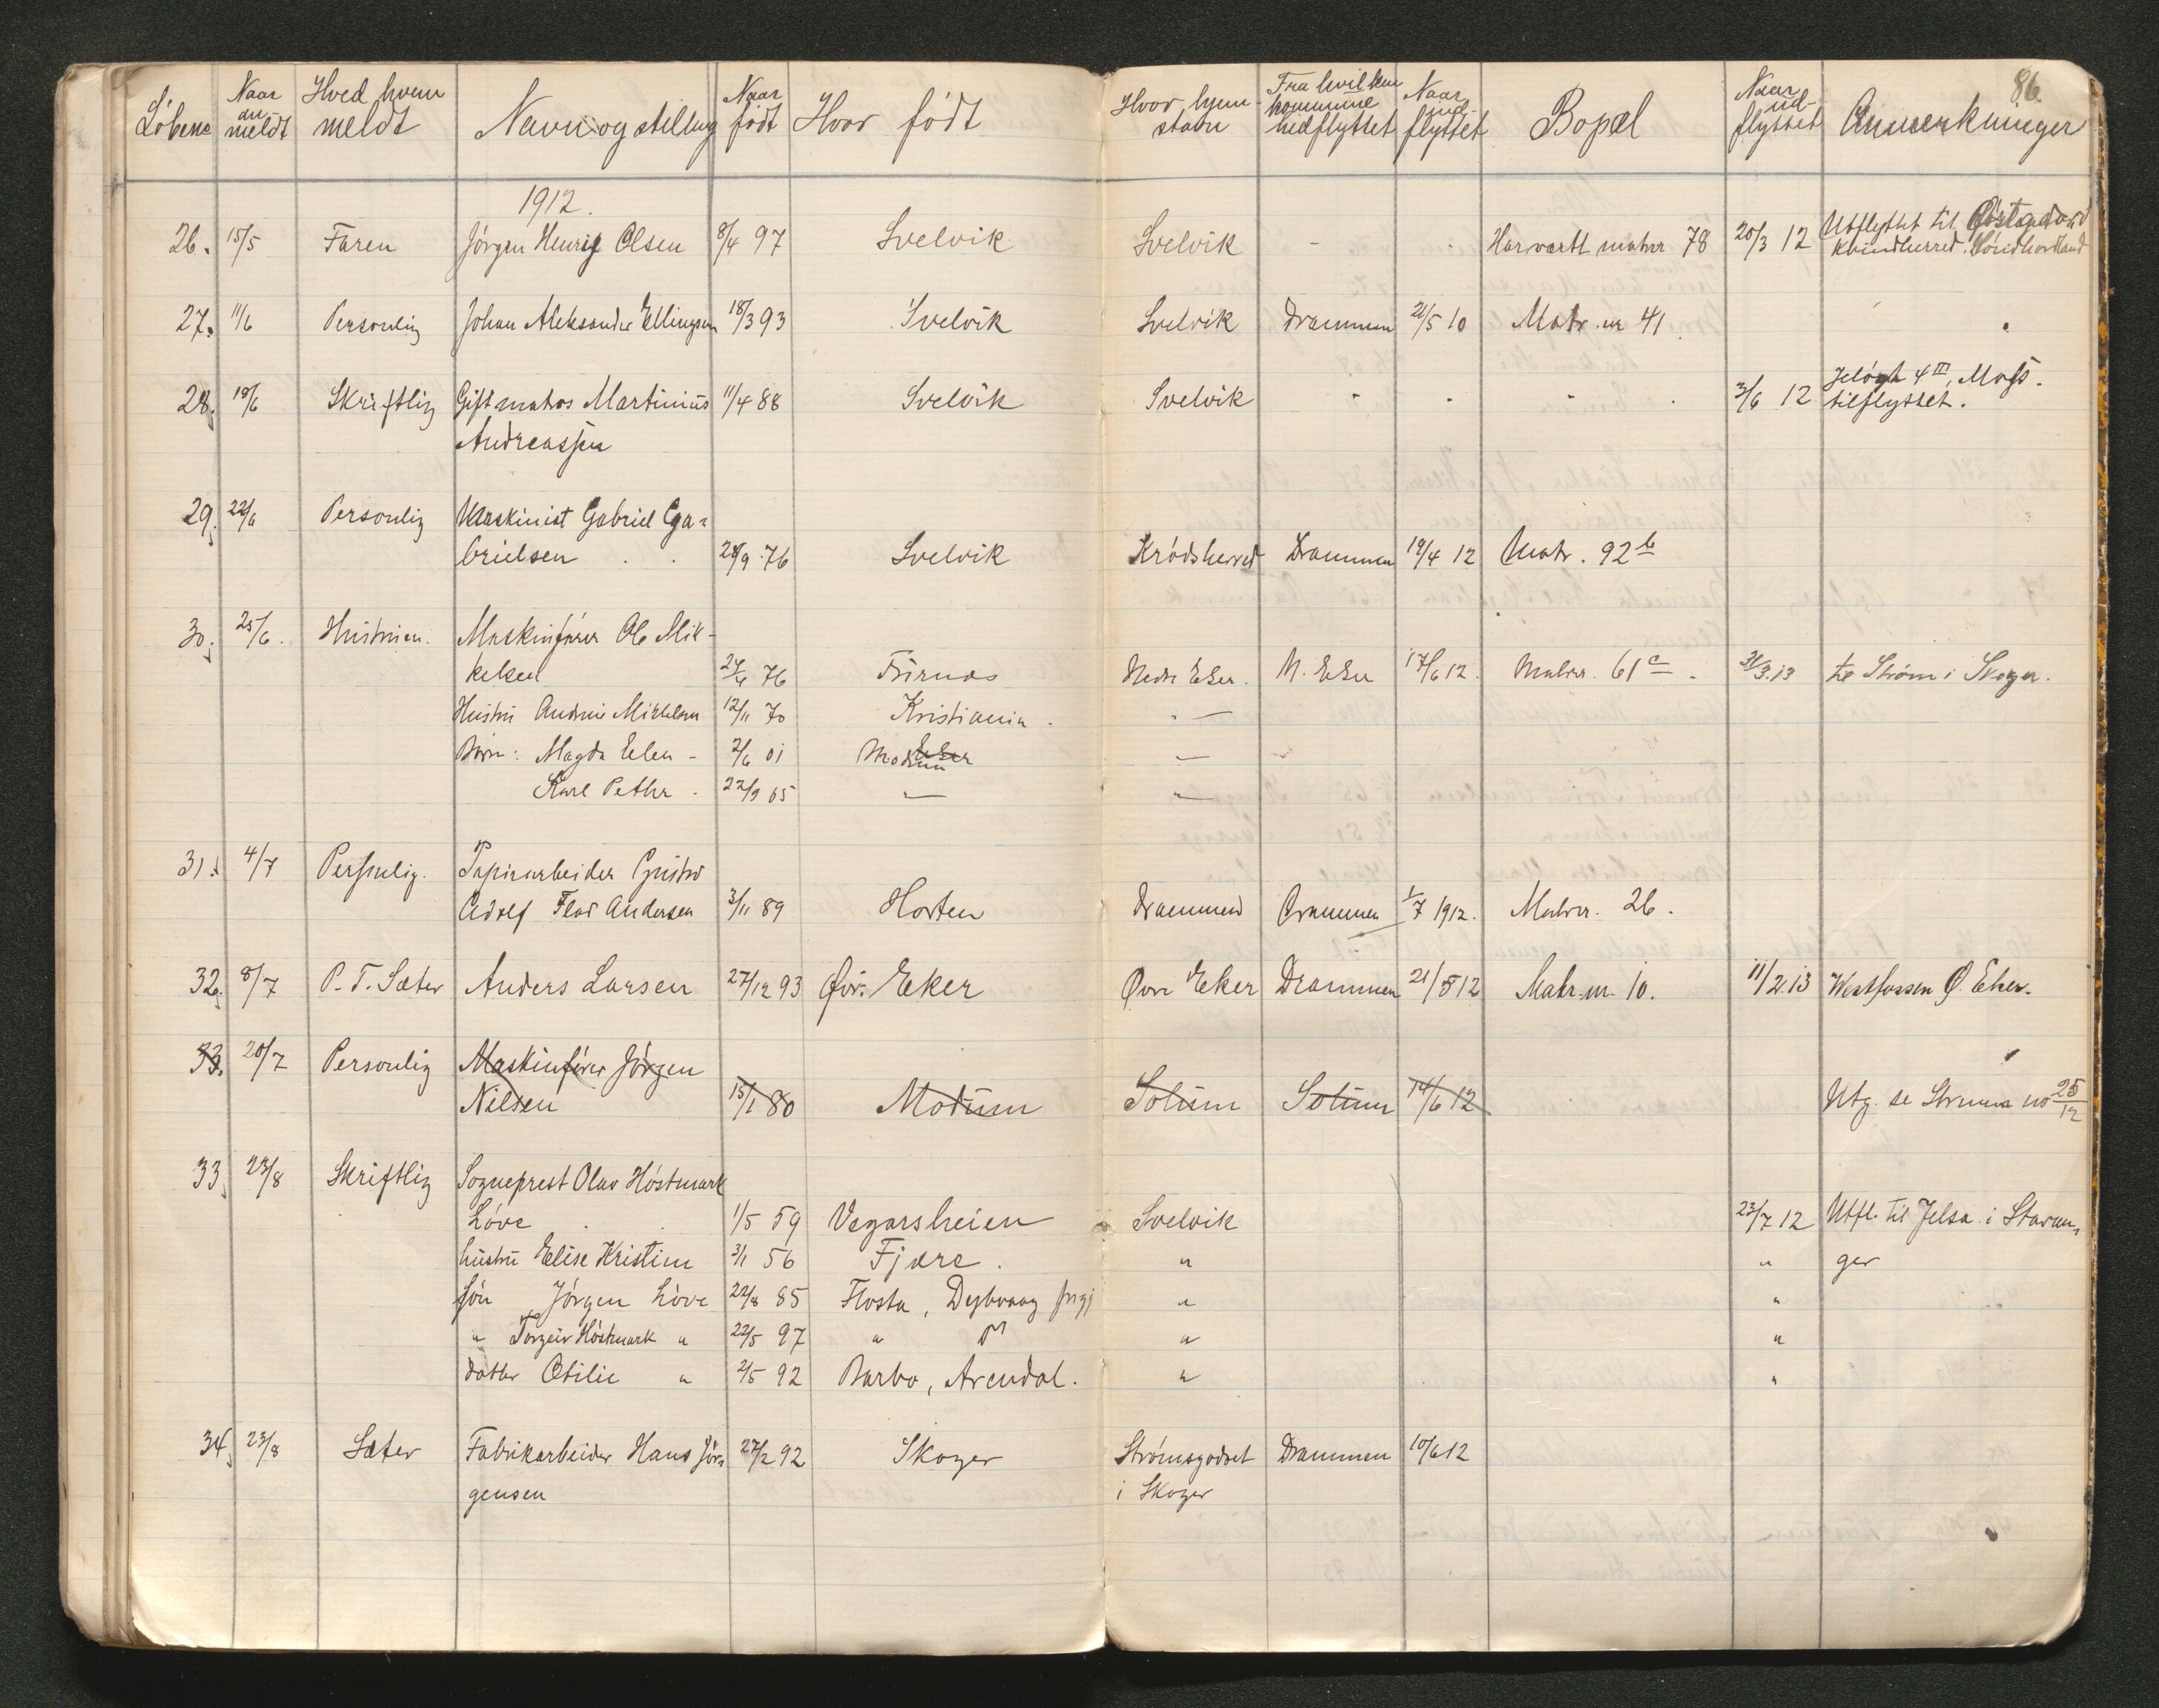 86.
Løbene Naar an meldt Hved hvem meldt Navn og stilling Naar født Hvor født Hvor hjem stavn Fra hvilken kommune hidflyttet Naar ind- flyttet Bopæl Naar ud- flyttet Anmerkninger
1912.
26. 15/5 Faren Jørgen Henrig Olsen 8/4 97 Svelvik Svelvik - - Harvartt matnr 78 20/3 12 Utflyttet til
Kvindherred. Söndhordland
27. 11/6 Personlig Johan Aleksander Ellingsen 18/3 93 Svelvik Svelvik Drammen 21/5 10 Matr. nr 41.
28. 19/6 Skriftlig Gift matros Martinius 11/4 88 Svelvik Svelvik - - - 3/6 12 4 III, Moss.
Andreassen tilflyttet.
29. 22/6 Personlig Maskinist Gabriel Ga=
brielsen . . 28/9 76 Svelvik Krødsherred Drammen 19/4 12 Matr. 92 b
30. 25/6. Hustruen. Maskinfører Ole Mik-
kelsen 24/4 76 Nedre Eker. N. Eker 17/6 12. Matnr. 61 c. 31/3.13 til Strøm i Skoger.
Hustru Andrine Mikkelsen 12/11 70 Kristiania. " —
Børn: Magda Elen - 2/6 01 Modum —
Karl Petter . 22/9 05 — " —
31. 4/7 Personlig. Papirarbeider Gustav
Adolf Flor Andersen 3/11 89 Horten Drammen Drammen 1/7 1912. Matnr. 26.
32. 8/7 P. T. Sæter Anders Larsen 27/12 93 Øvr. Eker Øvre Eker Drammen 21/5 12 Matr. nr. 10. 11/2.13 Westfossen Ø. Eker.
33. 20/7 Personlig Maskinfører Jørgen
Nilsen 15/1 80 Modum Solum Solum 14/6 12 Utg. se Strømm no 25/12
33. 23/8 Skriftlig Sogneprest Olav Höstmark
Löve . . 1/5 59 Vegarsheien Svelvik 23/7 12 Utfl. til Jelsa i Stavan=
hustru Elise Kristine 3/1 56 Fjære. " " ger
sön Jörgen Löve 22/8 85 Flosta, Dybvaag prgj " "
" Torgeir Höstmark " 22/5 97 " " " "
datter Otilie " 2/5 92 Barbo, Arendal. " "
34. 23/8 Sæter Fabrikarbeider Hans Jör= 27/2 92 Skoger Strømsgodset Drammen 10/6 12
gensen i Skoger